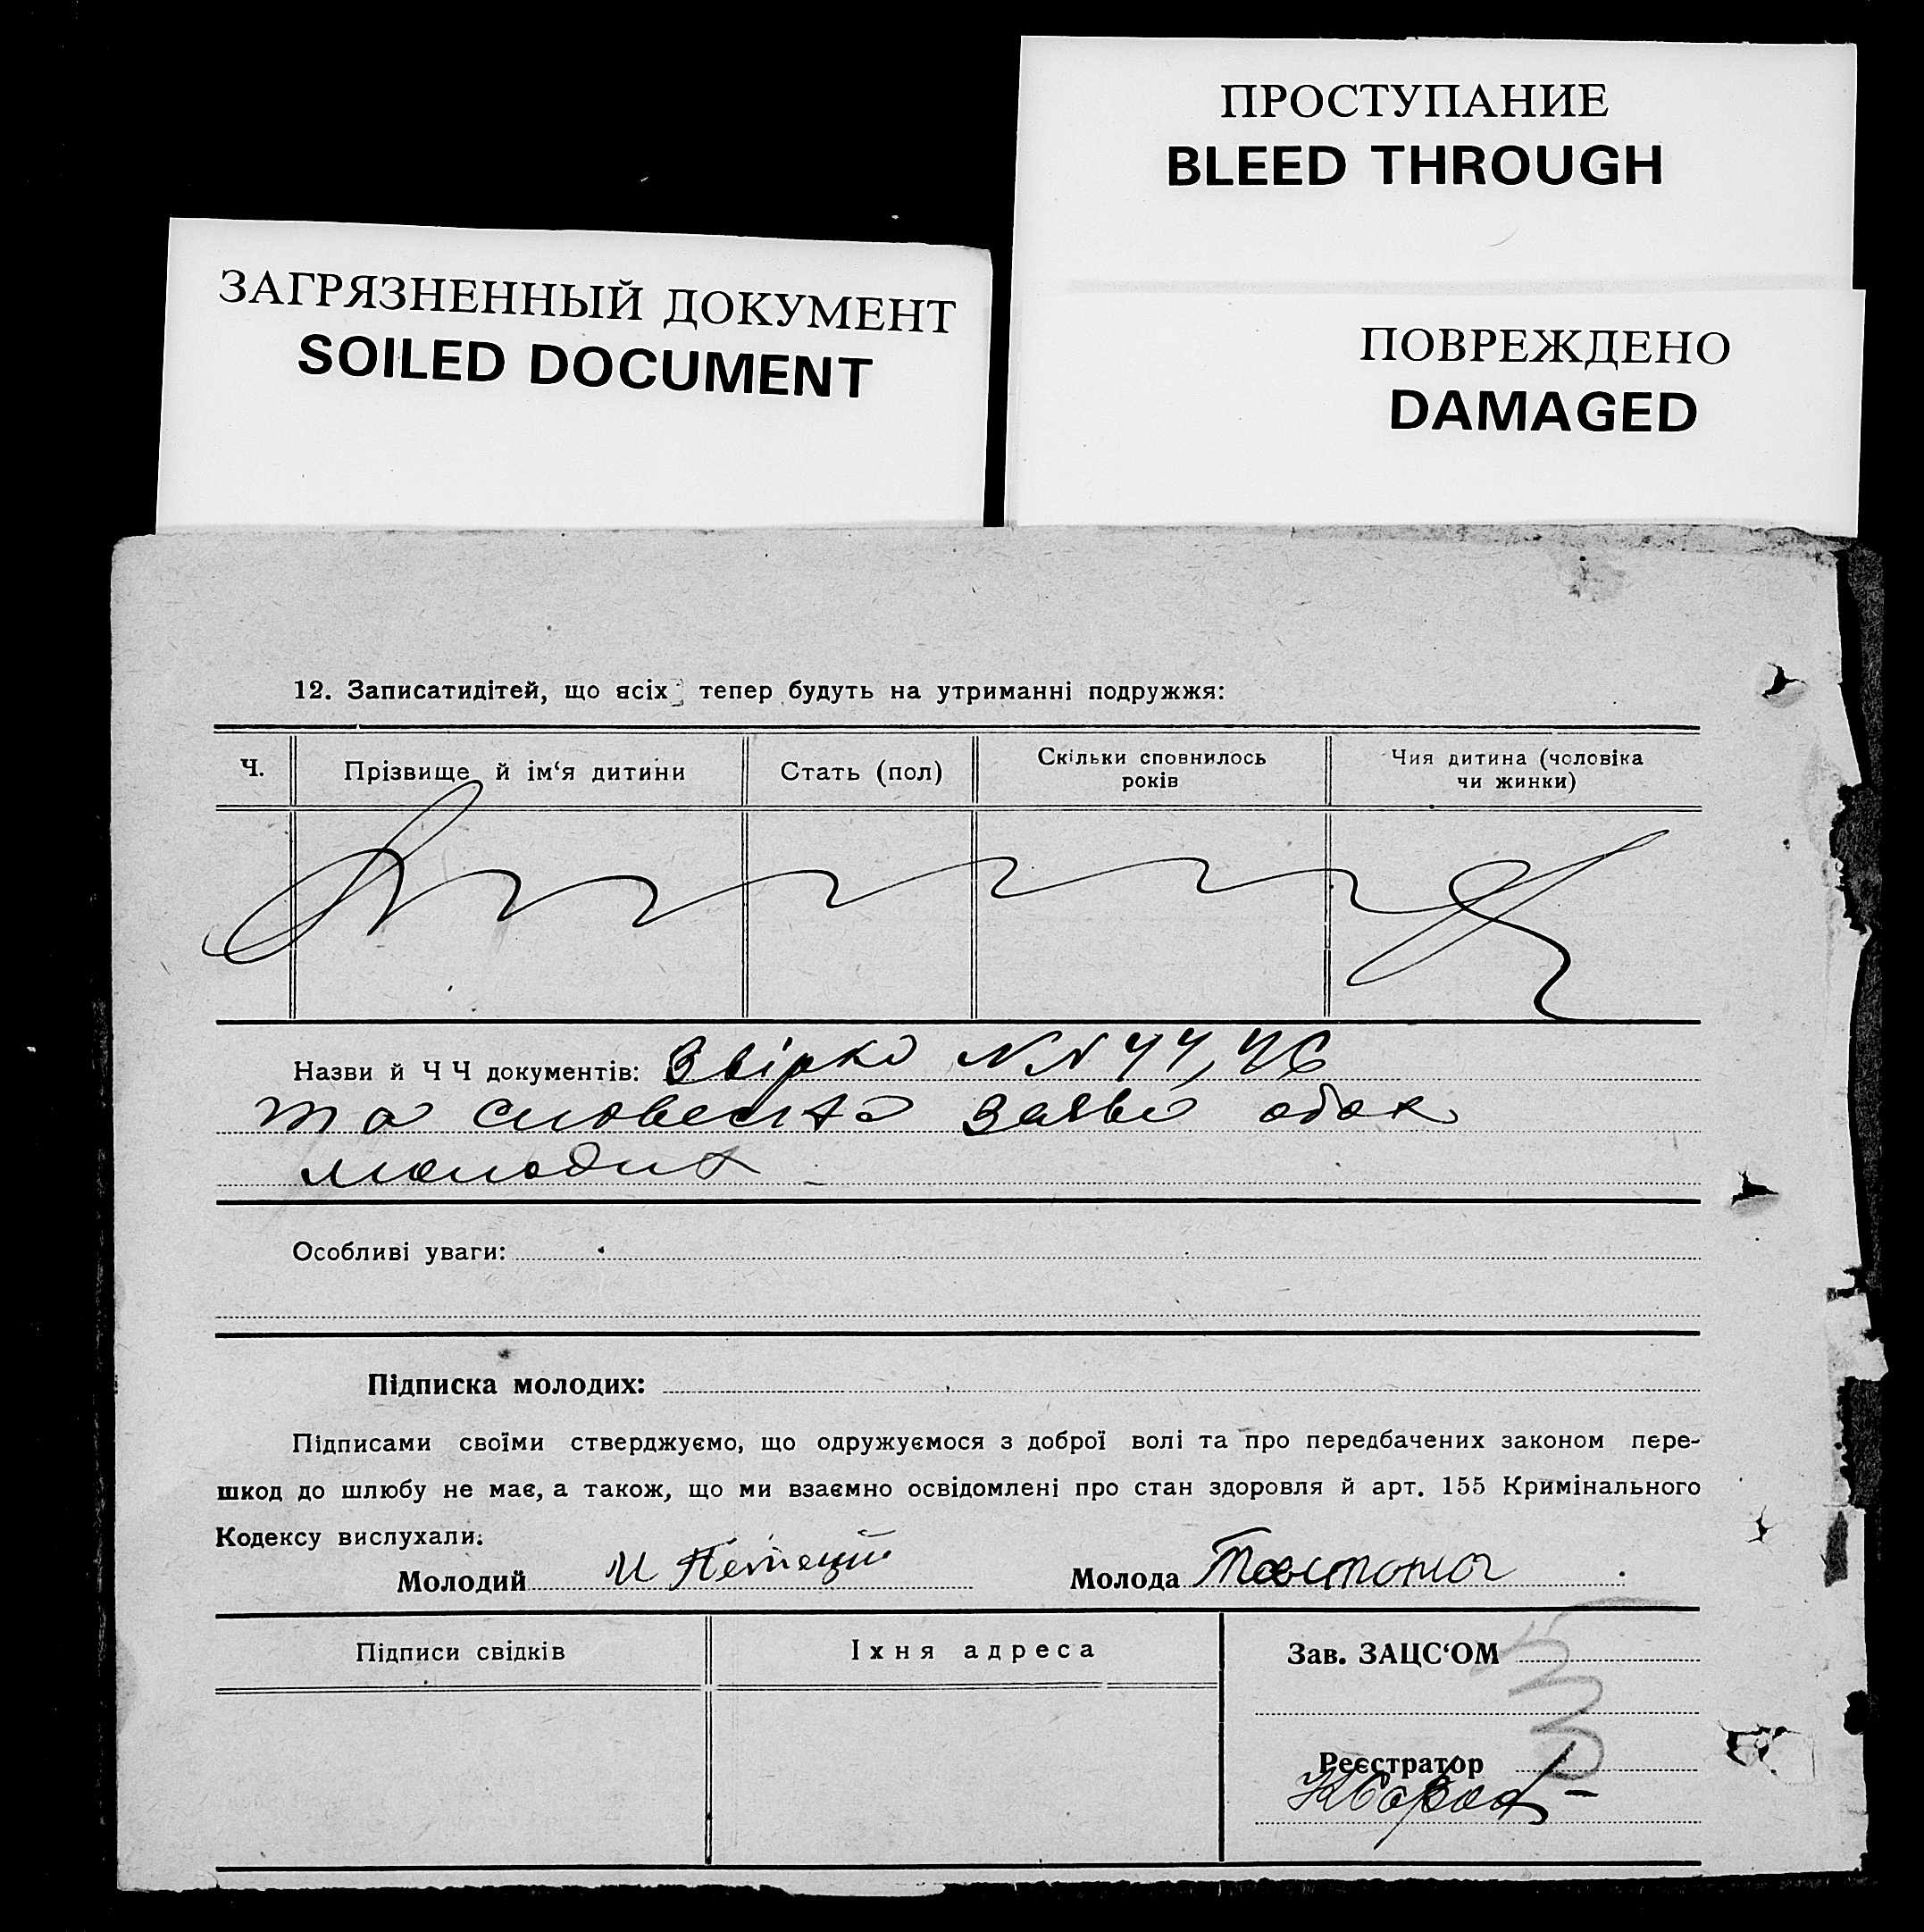 ПРОСТУПАНИЕ
BLEED THROUGH
ЗАГРЯЗНЕННЫЙ ДОКУМЕНТ
SOILED DOCUMENT
ПОВРЕЖДЕНО
DAMAGED
12. Записатидітей, що всіх тепер будуть на утриманні подружжя:
Ч.
Прізвище й ім‘я дитини
Стать (пол)
Скільки сповнилось
років
Чия дитина (чоловіка
чи жинки)
Назви й Ч Ч документів: Звірка NN 44, 46
та словесна заява обох
молодих
Особливі уваги:
Підписка молодих:
Підписами своїми стверджуємо, що одружуємося з доброї волі та про передбачених законом пере-
шкод до шлюбу не має, а також, що ми взаємно освідомлені про стан здоровля й арт. 155 Кримінального
Кодексу вислухали.
Молодий И
Молода
Підписи свідків
Їхня адреса
Зав. ЗАЦС‘ОМ
Реєстратор